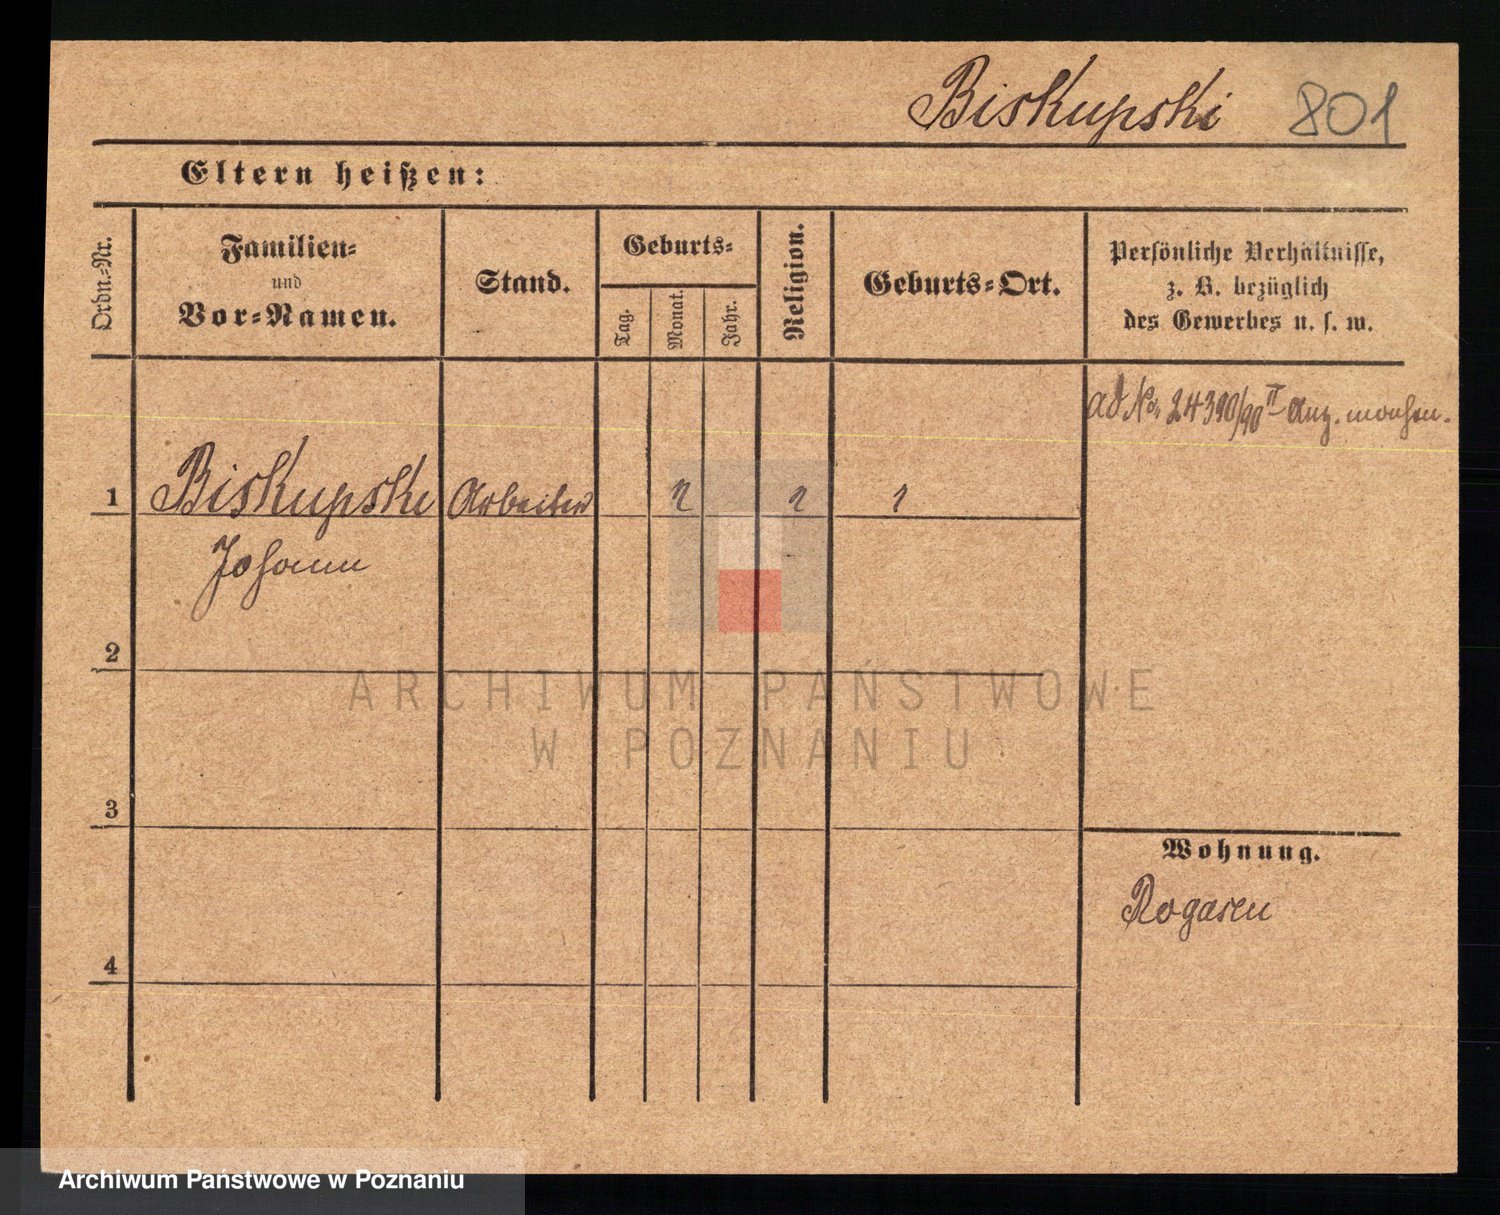 Biskupski 801
Eltern heißen:
Ordn.-Nr.
Familien-
und
Vor-Namen.
Stand.
Geburts-
Tag.
Monat.
Jahr.
Religion.
Geburts-Ort.
Persönliche Verhältnisse,
z. B. bezüglich
des Gewerbes u. s. w.
ad No. 24390/90 II
1 Biskupski Arbeiter ? ? ?
Johann
2
3
4
Wohnung.
Rogasen
ARCHIWUM PAŃSTWOWE
W POZNANIU
Archiwum Państwowe w Poznaniu